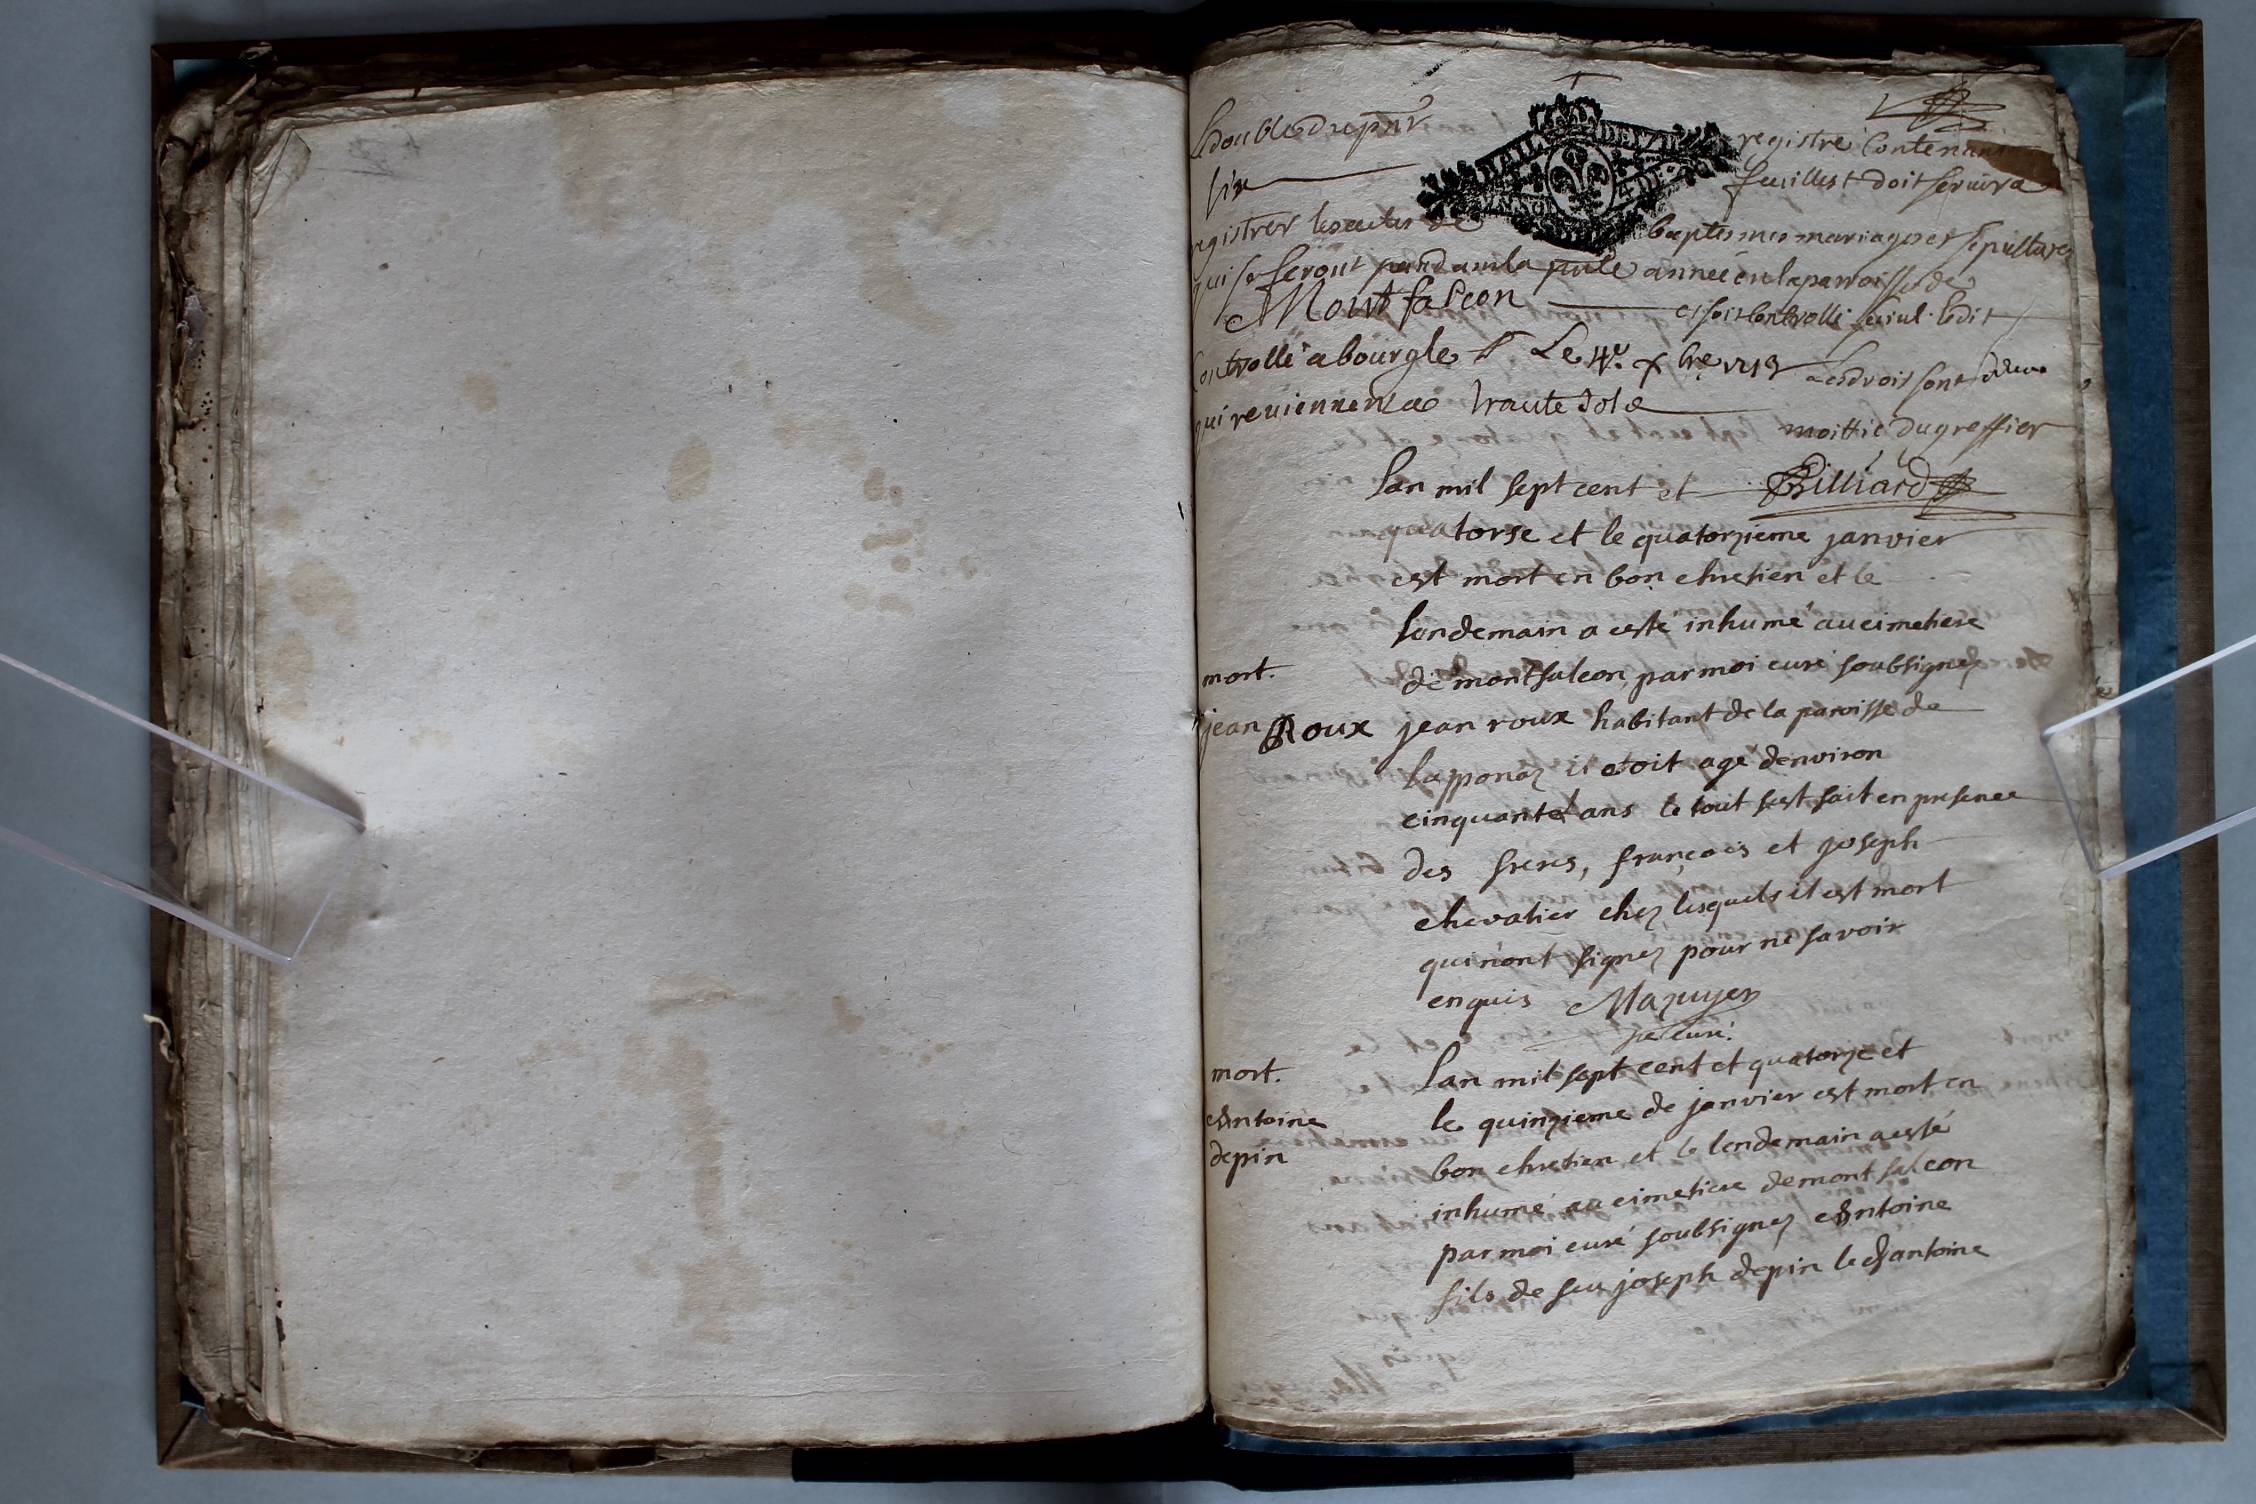 Le double du pnt registre contenant
six feuillest doit servir a
registrer les actes de baptesmes mariages et sepultures
qui se feront pendant la pnte année en la paroisse de
Montfalcon et soit controllé suiul. ledit
Controllé a bourgle Le 4e xbre 1713 les droits sont
qui reviennent a trante sols
moittié du greffier
Lan mil sept cent et Billiard
quatorse et le quatorzieme janvier
est mort en bon chretien et le
londemain a esté inhumé au cimetiere
mort. de montfalcon, par moi curé soubsignez
jean Roux jean roux habitant de la paroisse de
lapponaz il etoit agé denviron
cinquante ans le tout sest fait en presence
des freres, françois et joseph
chevalier chez lesquels il est mort
qui n'ont signez pour ne savoir
enquis Mazuyer
curé.
mort. Lan mil sept cent et quatorze et
Antoine le quinzieme de janvier est mort en
depin bon chretien et le lendemain a esté
inhumé au cimetiere de montfalcon
par moi curé soubsignez Antoine
fils de feu joseph depin led antoine